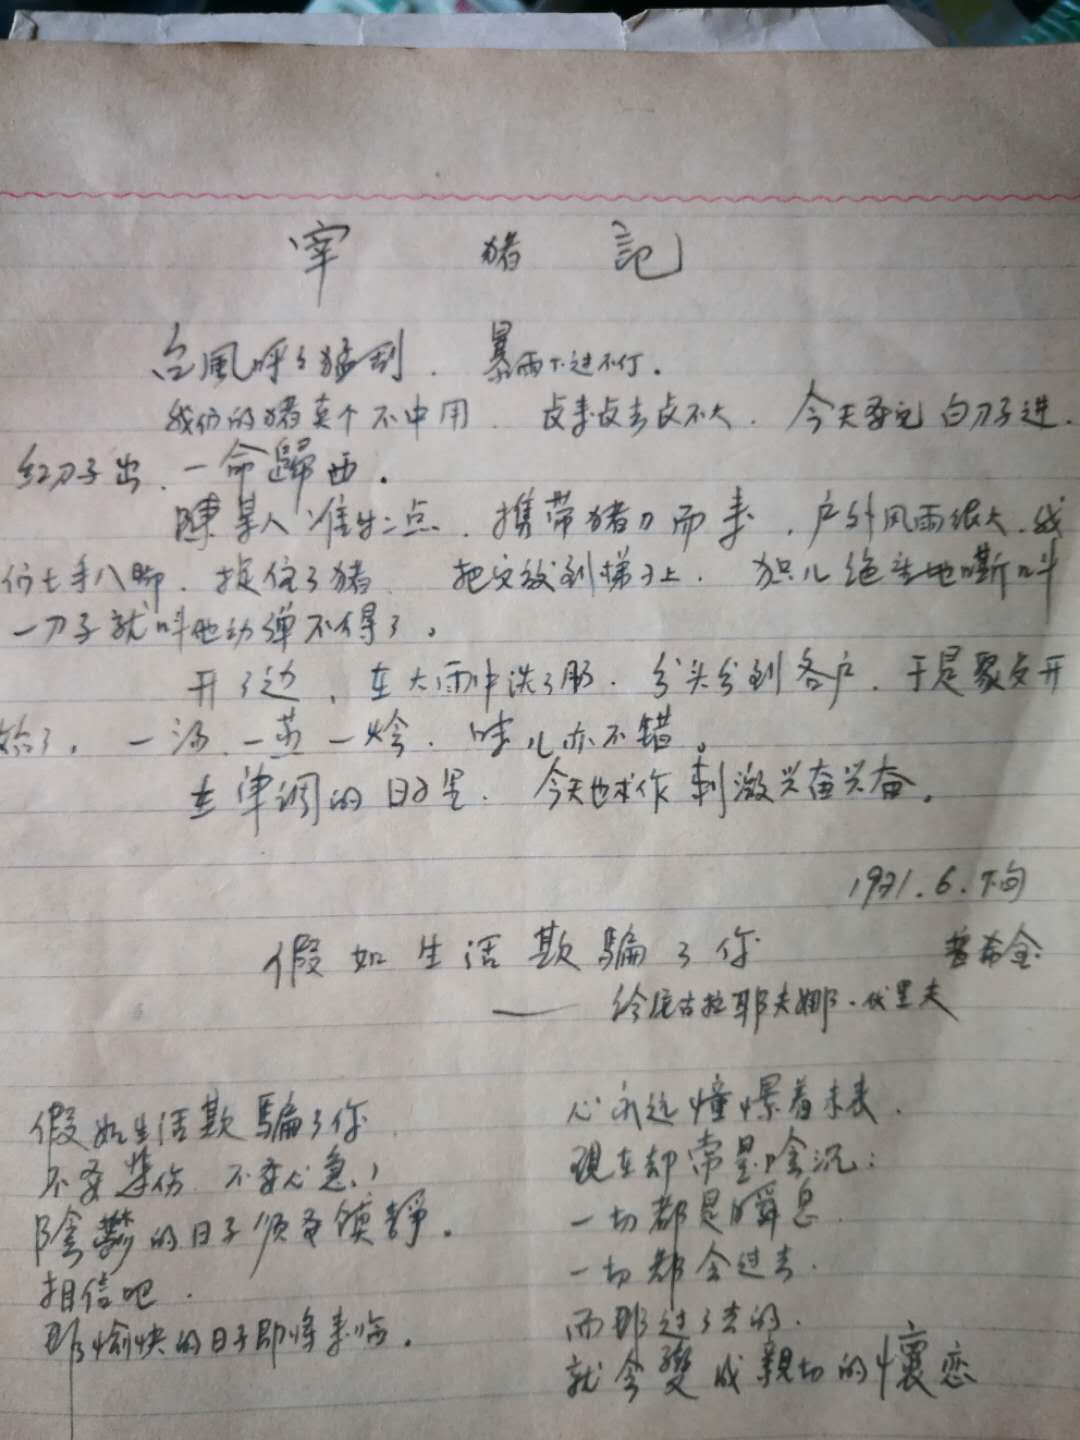 宰 猪 記
台風呼々猛刮． 暴雨下过不停．
我们的猪真个不中用． 卢来卢去卢不大． 今天 白刀子进．
红刀子出、一命歸西．
陳某人准生二点．携带猪刀而来．户外风雨很大．我
们七手八脚．捉住了猪 把它放到梯子上． 猪儿绝望地嘶叫
一刀子就叫他动弹不得了。
开了边，在大雨中洗了肠．分头分到各户．于是聚炊开
始了．一汤、一蒸一烩．味儿亦不错。
在单调的日子里． 今天也求作刺激兴奋兴奋。
1971.6.下旬
假如生活欺騙了你 普希金
—— 给 古拉耶夫娜·伏里夫
假如生活欺騙了你
不要悲伤 不要心急、！
陰鬱的日子须要镇静．
相信吧．
那愉快的日子即将来临．
心永远憧憬着未来．
現在却常是陰沉：
一切都是瞬息
一切都会过去．
而那过了去的．
就会變成親切的懷恋